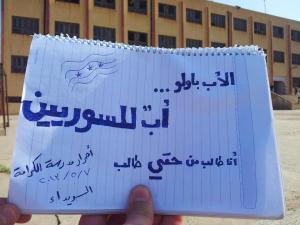 الأب باولو ...
أبٌ للسوريين
أنا طالب من حقّي طالب
أحرار مدرسة الكرامة
٢٠١٣/٥/٧
السويداء